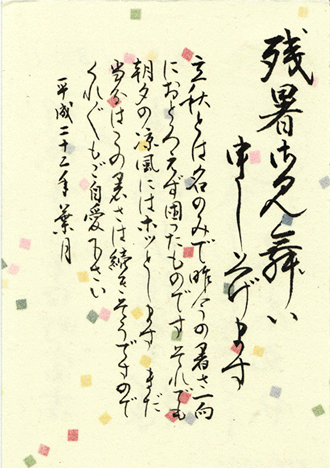 残暑お見舞い
申し上げます
立秋とは名のみで昨今の暑さ一向
におとろえず困ったものです それでも
朝夕の涼風にはホッとします まだ
当分はこの暑さは続きそうですので
くれぐもご自愛下さい
平成二十三年葉月